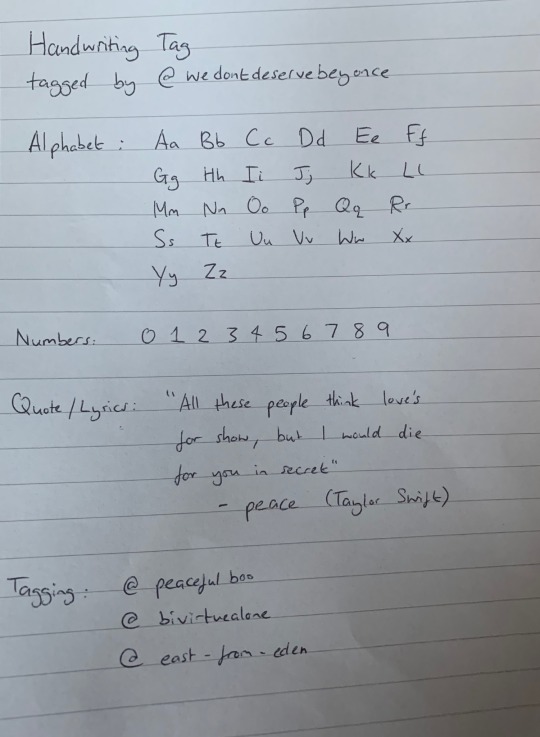 Handwriting Tag
tagged by @wedontdeservebeyonce
Alphabet : Aa Bb Cc Dd Ee Ff
Gg Hh Ii Jj Kk Ll
Mm Nn Oo Pp Qq Rr
Ss Tt Uu Vv Ww Xx
Yy Zz
Numbers: 0 1 2 3 4 5 6 7 8 9
Quote/Lyrics: "All these people think love's
for show, but I would die
for you in secret"
- peace (Taylor Swift)
Tagging: @ peacefulboo
@ bivirtuealone
@ east-from-eden